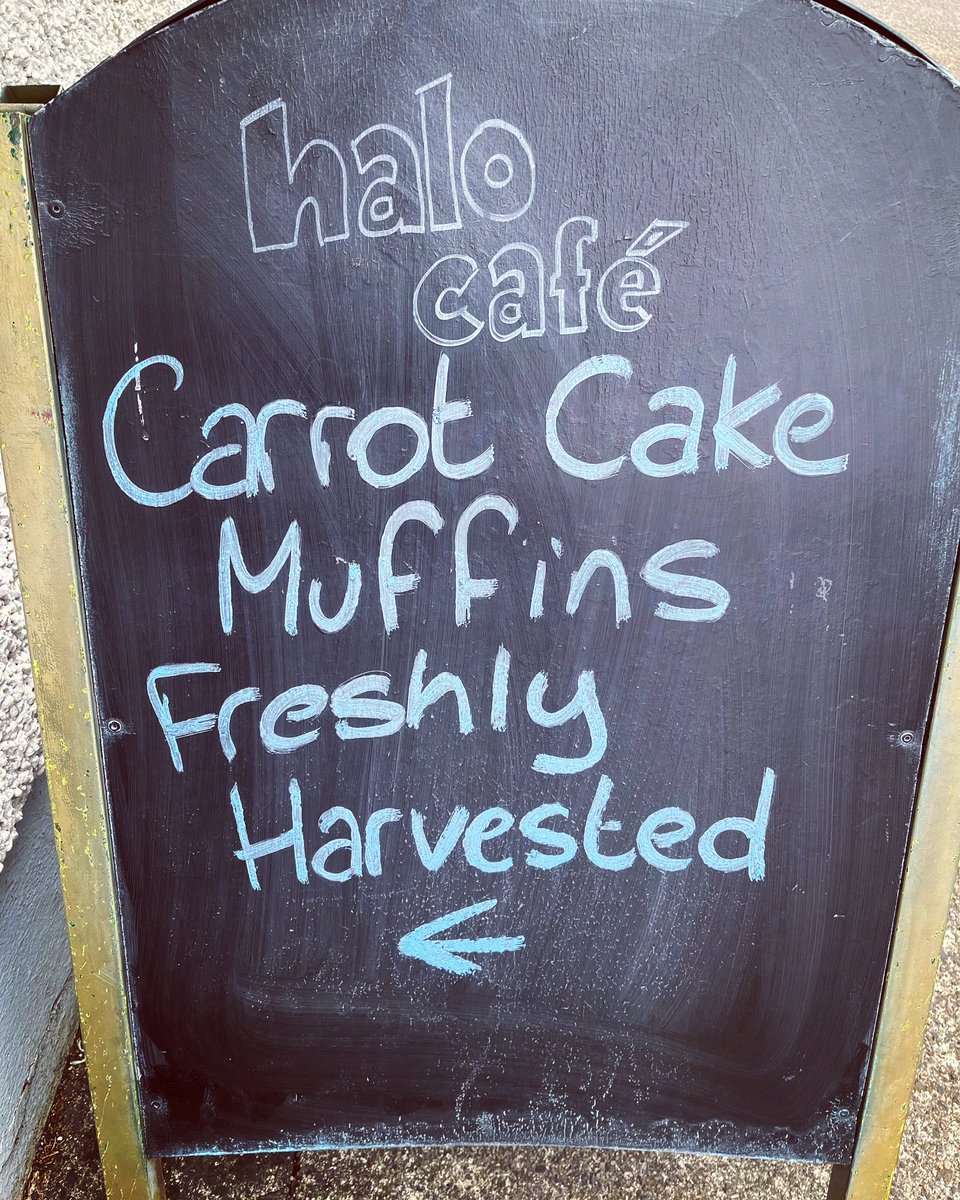 halo
café
Carrot Cake
Muffins
Freshly
Harvested
←